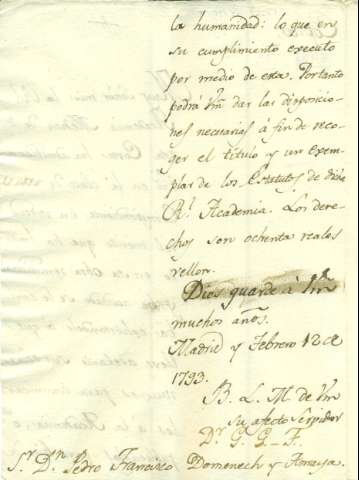 la humanidad: lo que en
su cumplimiento executo
por medio de esta. Portanto
podrá Vm dar las disposicio-
nes necesarias á fin de reco-
ger el titulo y un exem-
plar de los Estatutos de dicha
Rl. Academia. Los dere-
chos son ochenta reales
vellon.
Dios guarde á Vm
muchos años.
Madrid y Febrero 12 de
1793.
B. L. M. de Vm
su afecto servidor
Dr. G. G. F.
Sr. Dn. Pedro Francisco Domenech y Amaya.